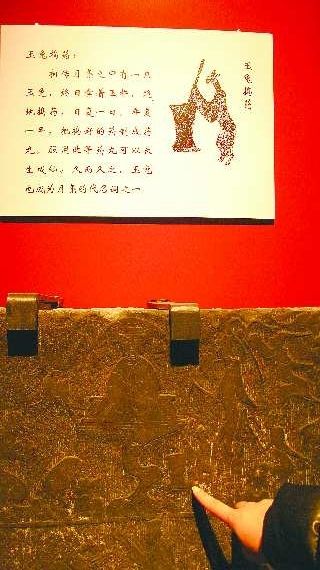 玉兔捣药：
相传月亮之中有一只
玉兔，终日拿着玉杵，跪
地捣药，日复一日，年复
一年，把捣好的药制成药
丸，服用此等药丸可以长
生成仙，久而久之，玉兔
也成为月亮的代名词之一
玉兔捣药